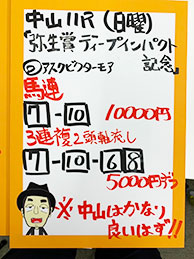 中山11R(日曜)
『弥生賞ディープインパクト
記念』
◎アスクビクターモア
馬連
7-10 10000円
3連複2頭軸流し
7-10-6 8
5000円ずつ
※中山はかなり
良いはず!!